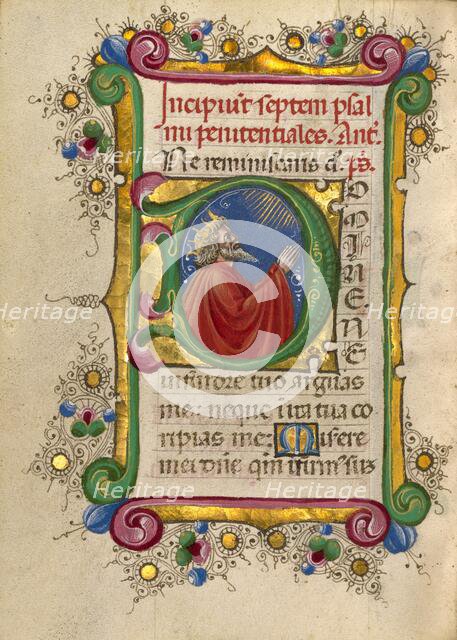 Incipiu͂t septem psal
mi penitentiales. An͂t.
Ne reminiscaris d͂. p͂s.
DOMINE NE
in furore tuo arguas
me: neque in ira tua co
ripias me: Misere
mei dn͂e qm͂ infirmus sus
Heritage
Heritage
Heritage
Heritage
Heritage
Heritage
Heritage